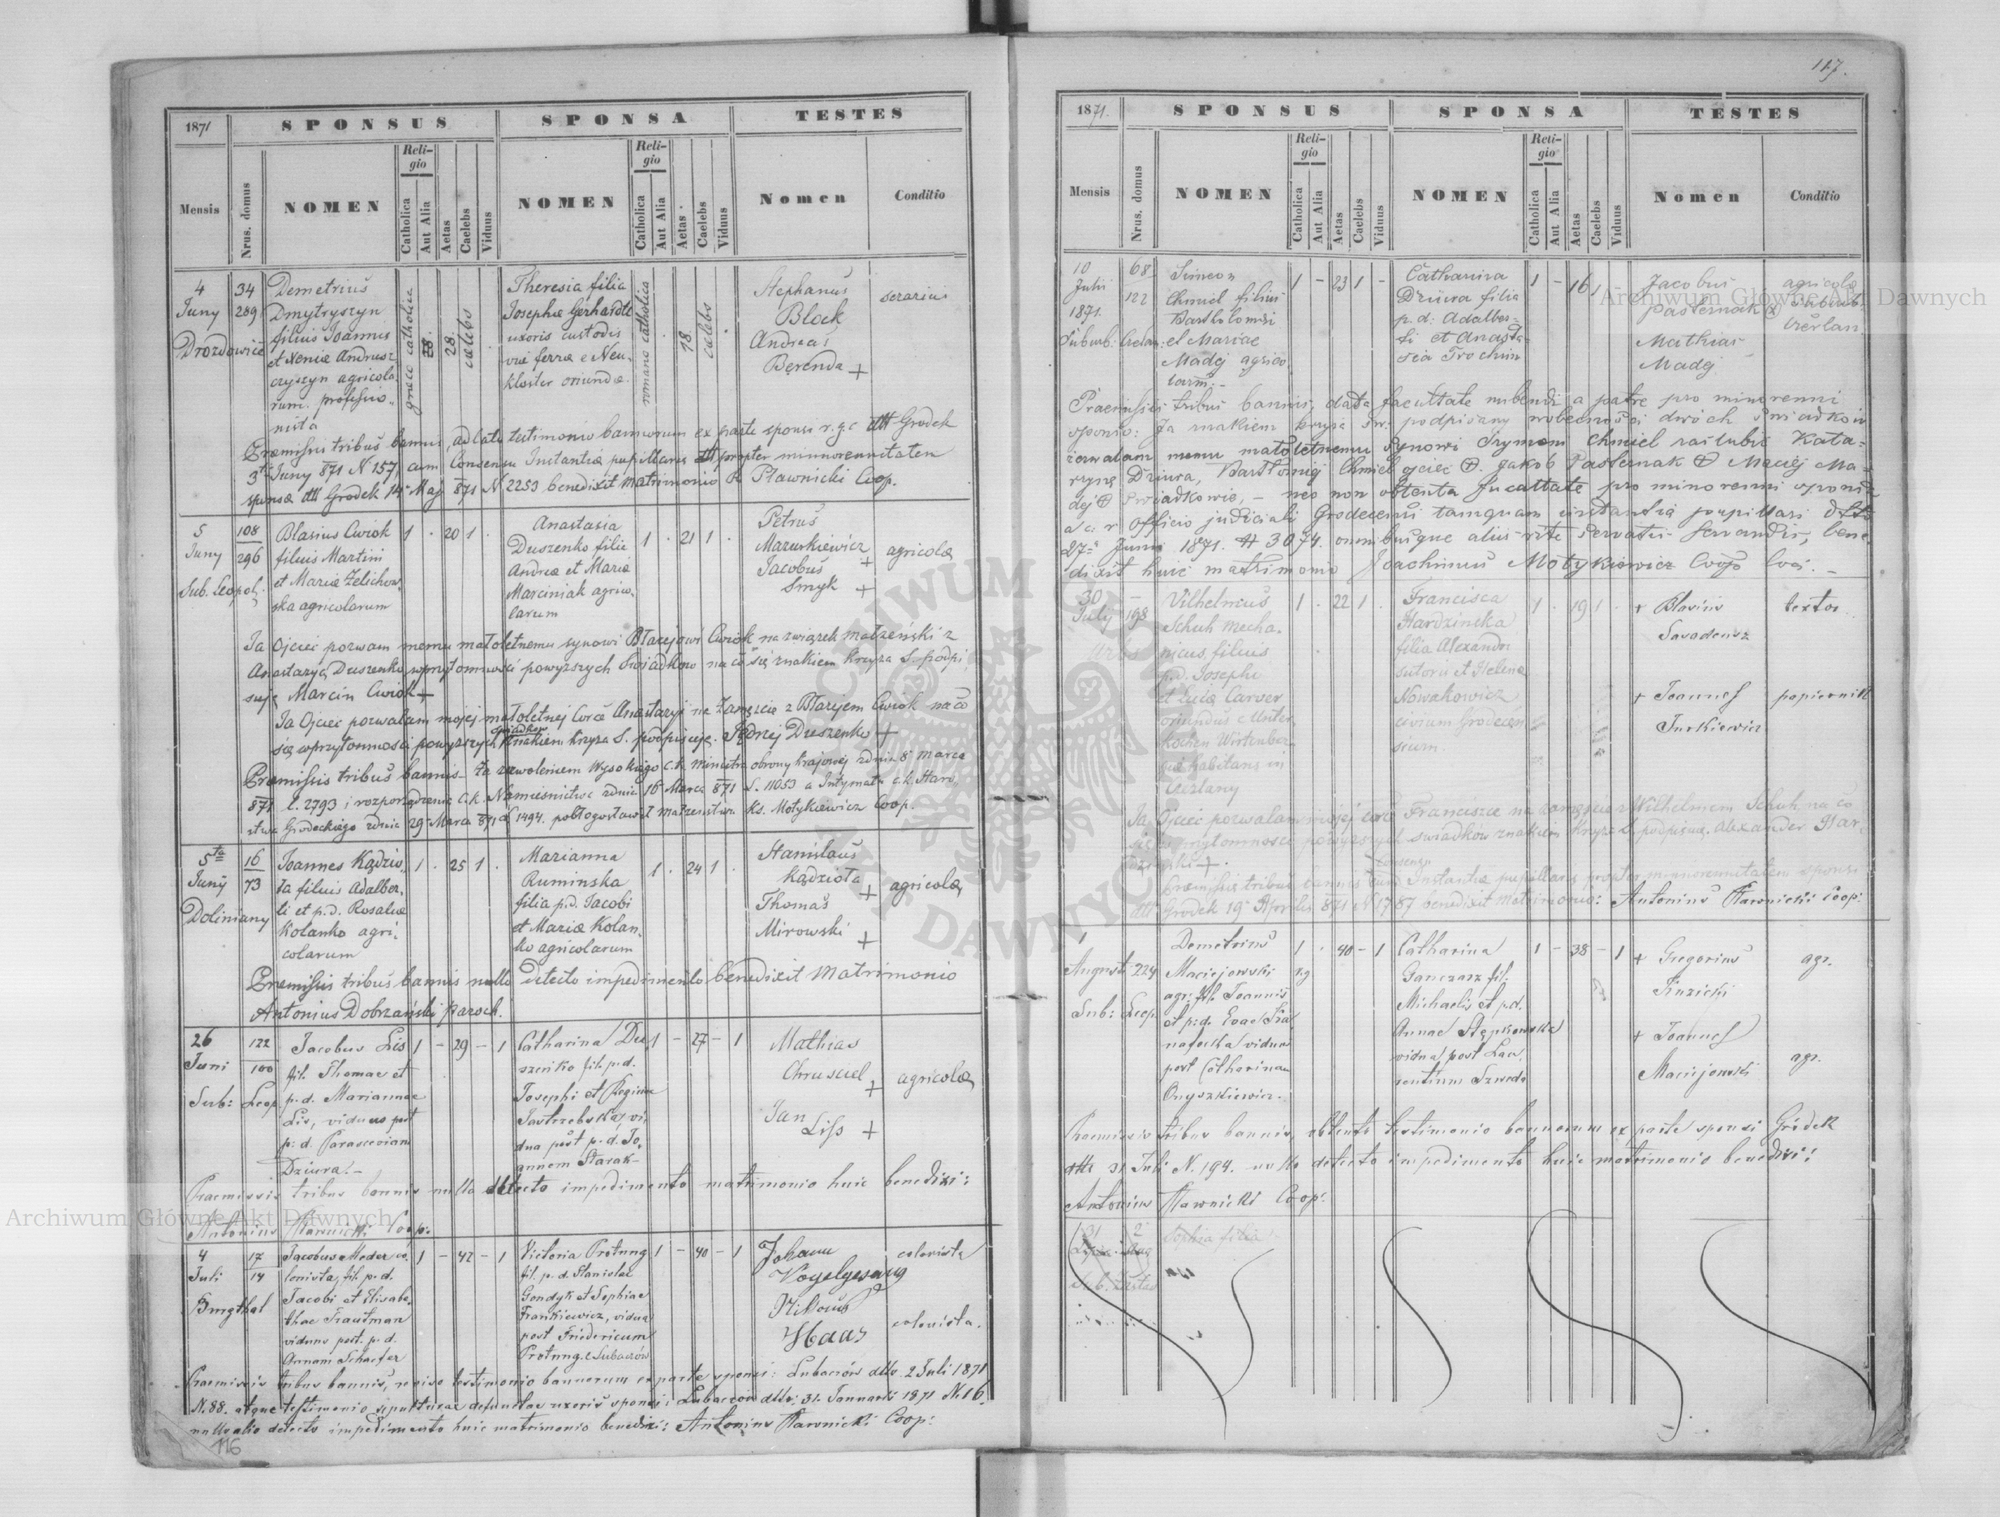 117.
1871
SPONSUS
SPONSA
TESTES
Mensis
Nrus. domus
NOMEN
Religio
Catholica
Aut Alia
Aetas
Caelebs
Viduus
NOMEN
Religio
Catholica
Aut Alia
Aetas
Caelebs
Viduus
Nomen
Conditio
4 Juny Drozdowice
34 289
Demetrius
Dmytryszyn
filius Joannis
et Xeniæ Andrusz
czyszyn agricola
rum. professio
nista
græco catholica
28.
28.
cælebs
Theresia filia
Josephæ Gerhardt
uxoris custodis
viæ ferræ e Neu
kloster oriundæ.
romano catholica
18.
cælebs
Stephanus
Block
Andreas
Berenda +
serarius
Præmissis tribus bannis, adlato testimonio bannorum ex parte sponsi r. g. c dtt Grodek
3tia Juny 871 N 157, cum Consensu Instantiæ pupillaris propter minorennitatem
sponsæ dtt Grodek 14 Maj 871 N 2253 benedixit matrimonio A Pławnicki Coop.
5 Juny Sub. Leopol.
108 296
Blasius Cwiok
filius Martini
et Mariæ Zelichow
ska agricolarum
1 . 20 1 .
Anastasia
Duszenko filia
Andreæ et Mariæ
Marciniak agrico
larum
1 . 21 1 .
Petrus
Mazurkiewicz +
Jacobus
Smyk +
agricolæ
Ja Ojciec pozwam memu małoletnemu synowi Błażejowi Cwiok na związek małżeński z
Anastazyą Duszenko w przytomności powyższych Świadków na co się znakiem krzyża S. podpi
suję Marcin Cwiok +
Ja Ojciec pozwalam mojej małoletnej Córce Anastazyi na zamęscie z Błażejem Cwiok na co
się w przytomności powyższych świadków znakiem krzyża S. podpisuję. Jędrzej Duszenko +
Præmissis tribus bannis za zezwoleniem Wysokiego c.k. ministra obrony krajowej z dnia 8 marca
871 L. 2793 i rozporządzenia C.K. Namiesnictwa z dnia 16 Marca 871 L. 11053 a Intymatu c.k. Staro
stwa Grodeckiego z dnia 29 Marca 871 L 1494. pobłogosławił małzenstwu ks. Motykiewicz Coop.
5ta Juny Doliniany
16 73
Joannes Kądzio
ła filius Adalber
ti et p.d. Rosaliæ
Kolanko agri
colarum
1 . 25 1 .
Marianna
Ruminska
filia p.d. Jacobi
et Mariæ Kolan
ko agricolarum
1 . 24 1 .
Stanislaus
Kądzioła +
Thomas
Mirowski +
agricolæ
Præmissis tribus bannis nullo detecto impedimento benedixit Matrimonio
Antonius Dobrzański paroch.
26 Juni Sub: Leop
122 100
Jacobus Lis
fil. Thomae et
p. d. Mariannae
Lis, viduus post
p. d. Parascevian
Dziura.-
1 - 29 - 1
Catharina Du
szeńko fil. p.d.
Josephi et Reginae
Jastrzebska, vi
dua post p. d. Jo
annem Starak-
1 - 27 - 1
Mathias
Chrusciel +
Jan
Liss +
agricolæ
Praemissis tribus bannis nullo detecto impedimento matrimonio huic benedixi:
Antonius Pławnicki Coop:
4 Juli Burgthal
17 14
Jacobus Meder co
lonista, fil. p. d.
Jacobi et Elisabe
thae Trautman
viduus post. p. d.
Annam Schaefer
1 - 42 - 1
Victoria Protung
fil. p. d. Stanislai
Gondyk et Sophiae
Frankiewicz, vidua
post Fridericum
Protung e Lubaczów
1 - 40 - 1
Johann
Vogelgesang
Nikolaus
Haas
colonista
colonista.
Praemissis tribus bannis, reciso testimonio bannorum ex parte sponsi: Lubaczów dtto 2 Juli 1871
N. 88. atque testimonio sepulturae defunctae uxoris sponsi: Lubaczów dtto: 31. Januarii 1871 N. 16.
nulloq alio detecto impedimento huic matrimonio benedixi: Antonius Pławnicki Coop:
116
1871.
SPONSUS
SPONSA
TESTES
Mensis
Nrus. domus
NOMEN
Religio
Catholica
Aut Alia
Aetas
Caelebs
Viduus
NOMEN
Religio
Catholica
Aut Alia
Aetas
Caelebs
Viduus
Nomen
Conditio
10 Julii 1871.
68 122
Simeon
Chmiel filius
Bartholomæi
et Mariae
Madej agrico
larum.-
1 - 23 1 -
Catharina
Dziura filia
p. d: Adalber-
ti et Anasta-
sia Trochim
1 - 16 1 -
Jacobus
Pasternak
Mathias
Madej
agricola
Praemissis tribus bannis, data facultate nubendi a patre pro minorenni
sponso: Ja znakiem krzyża św: podpisany w obecności dwóch świadków
zezwalam memu małoletnemu synowi Szymon Chmiel zaślubić Kata-
rynę Dziura, Bartłomiej Chmiel ojciec. Jakób Pasternak Maciej Ma-
dej świadkowie, - nec non obtenta facultate pro minorenni sponsa
a c. r. officio judiciali Grodecensi tamquam instantia pupillari dtto
27a Junii 1871. # 3074. omnibusque aliis rite servatis servandis, bene
dixit huic matrimonio Joachimus Motykiewicz Coop loci. -
30 July
198
Vilhelmus
Schuh mecha.
nicus, filius
p.d. Josephi
et Luciæ Carver
oriundus e Unter
kochen Wirtenber
giæ habitans in
Czerlany
1 . 22 1 .
Francisca
Hardzinska
filia Alexandri
sutoris et Helenæ
Nowakowicz
civium Grodecen
sium.
1 . 19 1 .
+ Blasius
+ Joannes
Turkiewicz
textor.
papiernik
Ja Ojciec pozwalam mojej córce Franciszce na zamęscie z Wilhelmem Schuh na co
się w przytomności powyższych świadków znakiem krzyża S. podpisuję. Alexander Har-
dziński +.
Præmissis tribus bannis cum Consensu Instantiæ pupillaris propter minorennitatem sponsi
dtt Grodek 19 Aprilis 871 N 1787 benedixit matrimonio: Antonius Pławnicki Coop:
1 Augusti Sub: Leop
224
Demetrius
Maciejowski
agr. fil. Joannis
et p.d. Evae
viduus
post Catharinam
Onyszkiewicz.
1 . 40 - 1
rg
Catharina
Ganczarz fil.
Michaelis et p.d.
Annae Stępkowska
vidua post Lau
rentium Szwed
1 - 38 - 1
+ Gregorius
+ Joannes
Maciejowski
agr.
agr.
Praemissis tribus bannis, obtento testimonio bannorum ex parte sponsi Gródek
dtto 31 Juli N. 194. nullo detecto impedimento huic matrimonio benedixi:
Antonius Pławnicki Coop:
31
2
Sophia filia
ARCHIWUM GŁÓWNE AKT DAWNYCH
Archiwum Główne Akt Dawnych
Archiwum Główne Akt Dawnych